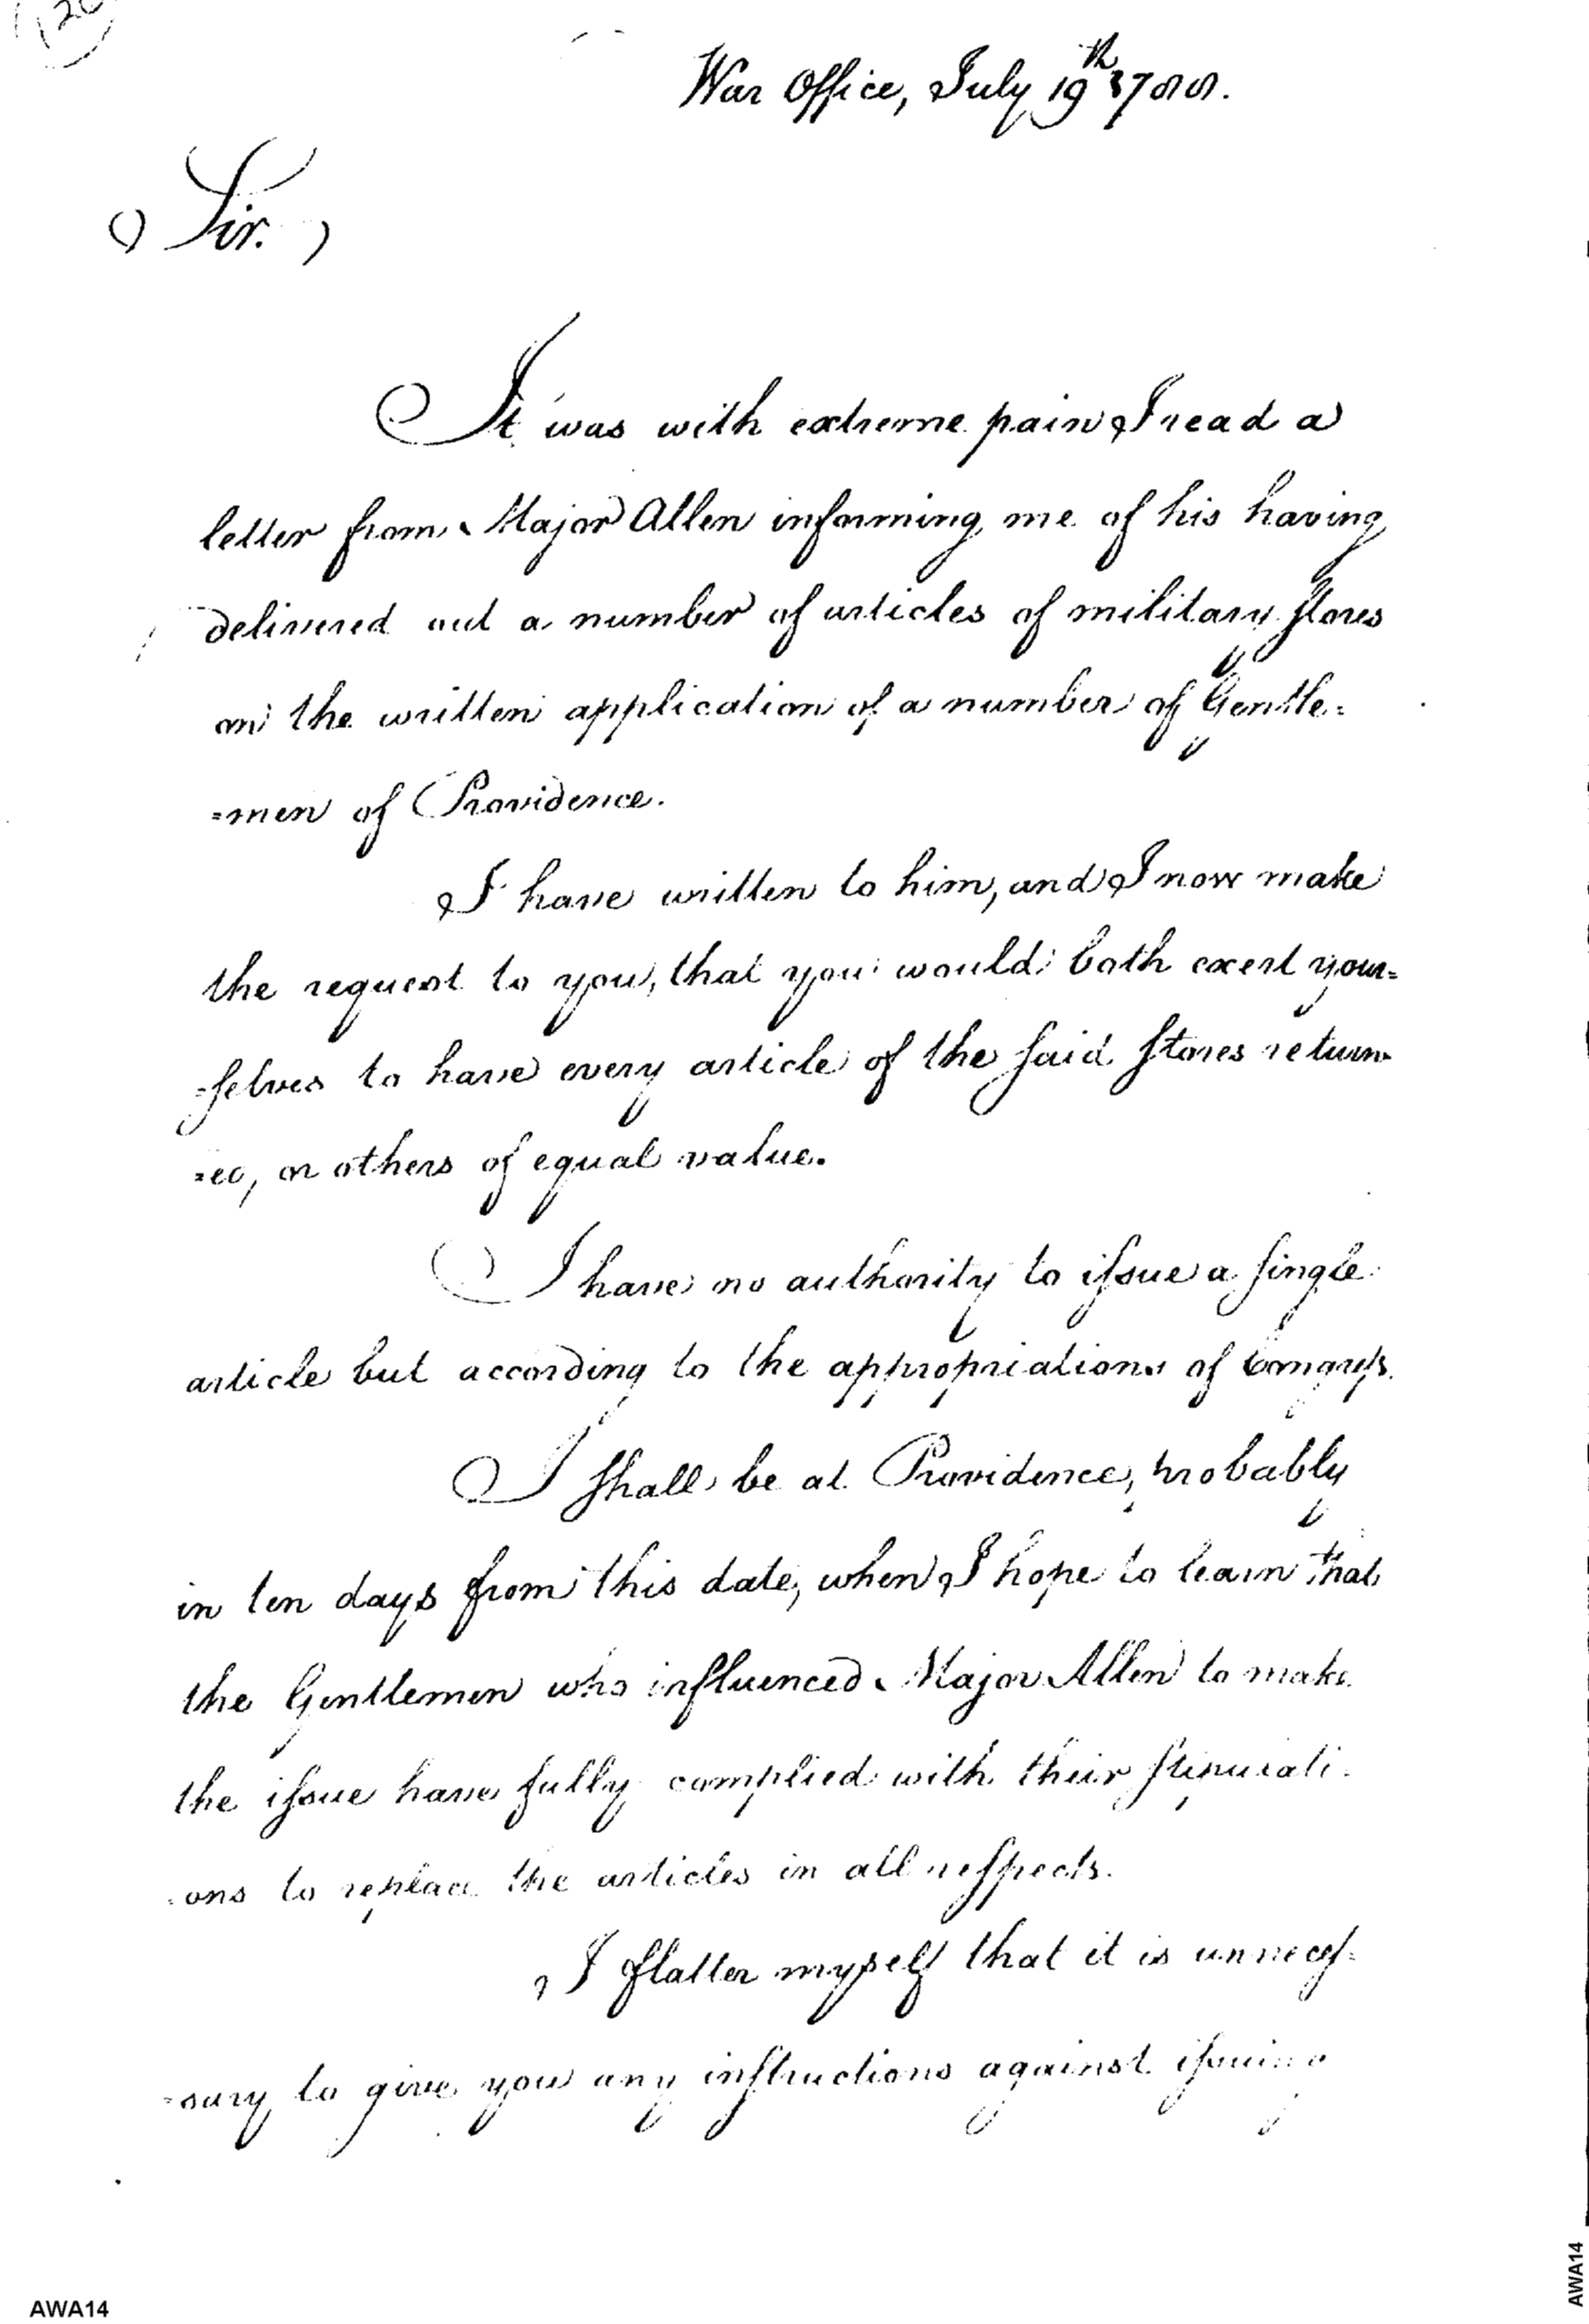 War Office, July 19th 1788.
Sir.
It was with extreme pain I read a
letter from Major Allen informing me of his having
delivered out a number of articles of military stores
on the written application of a number of Gentle=
=men of Providence.
I have written to him, and I now make
the request to you, that you would both exert your=
=selves to have every article of the said stores return=
=ed, or others of equal value.
I have no authority to issue a single
article but according to the appropriations of Congress.
I shall be at Providence, probably
in ten days from this date, when I hope to learn that
the Gentlemen who influenced Major Allen to make
the issue have fully complied with their stipulati=
=ons to replace the articles in all respects.
I flatter myself that it is unneces=
=sary to give you any instructions against issuing
AWA14
AWA14